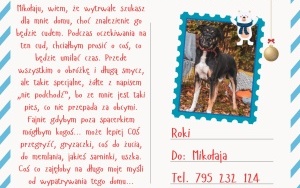 Mikołaju, wiem, że wytrwale szukasz
dla mnie domu, choć znalezienie go
będzie cudem. Podczas oczekiwania na
ten cud, chciałbym prosić o coś, co
będzie umilać czas. Przede
wszystkim o obróżkę i długą smycz,
ale takie specjalne, żółte z napisem
„nie podchodź”, bo ze mnie jest taki
pies, co nie przepada za obcymi.
Fajnie gdybym poza spacerkiem
mógłbym kogoś... może lepiej COŚ
przegryźć, gryzaczki, coś do żucia,
do memłania, jakieś saminki, uszka.
Coś co zajęłoby na długo moje myśli
od wypatrywania tego domu...
Roki
Do: Mikołaja
Tel. 795 232 124